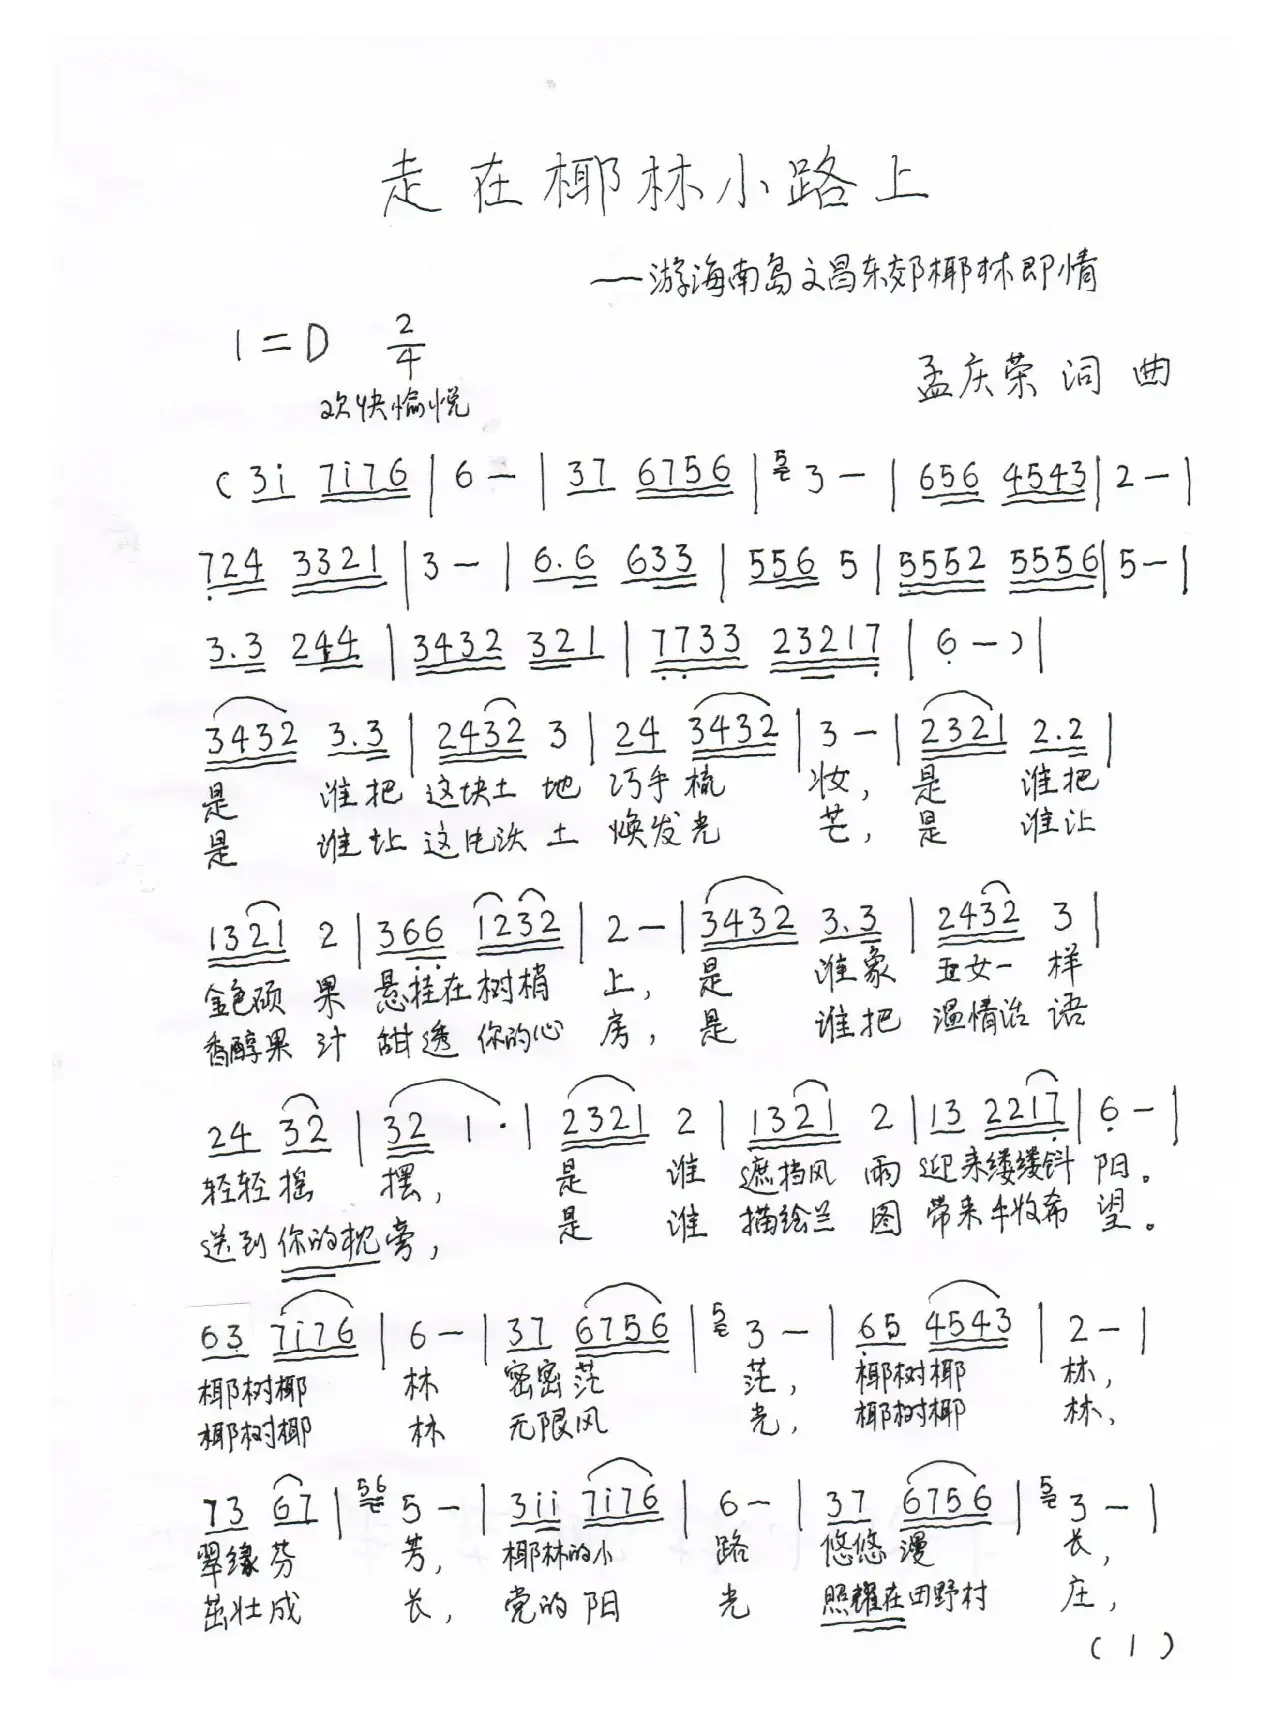 走在椰林小路上
——游海南岛文昌东郊椰林即情
1=D 2/4
孟庆荣 词 曲
欢快愉悦
( 3i 7i76 | 6 — | 37 6756 | 5 3 — | 656 4543 | 2 — |
724 3321 | 3 — | 6.6 633 | 556 5 | 5552 5556 | 5 — |
3.3 244 | 3432 321 | 7733 23217 | 6 — ) |
3432 3.3 | 2432 3 | 24 3432 | 3 — | 2321 2.2 |
是 谁把 这块土 地 巧手梳 妆, 是 谁把
是 谁让 这 土 焕发光 芒, 是 谁让
1321 2 | 366 1232 | 2 — | 3432 3.3 | 2432 3 |
金色硕 果 悬挂在树梢 上, 是 谁象 女一 样
香醇果 汁 甜透 你的心 房, 是 谁把 温情话 语
24 32 | 32 1 · | 2321 2 | 1321 2 | 13 2217 | 6 — |
轻轻摇 摆, 是 谁 遮挡风 雨 迎来缕缕斜 阳。
送到你的枕旁, 是 谁 描绘兰 图 带来 收希 望。
63 7i76 | 6 — | 37 6756 | 5 3 — | 65 4543 | 2 — |
椰树椰 林 密密茫 茫, 椰树椰 林,
椰树椰 林 无限风 光, 椰树椰 林,
73 67 | 56 5 — | 3ii 7i76 | 6 — | 37 6756 | 5 3 — |
翠缘芬 芳, 椰林的小 路 悠悠漫 长,
茁壮成 长, 党的阳 光 照耀在田野村 庄,
(1)